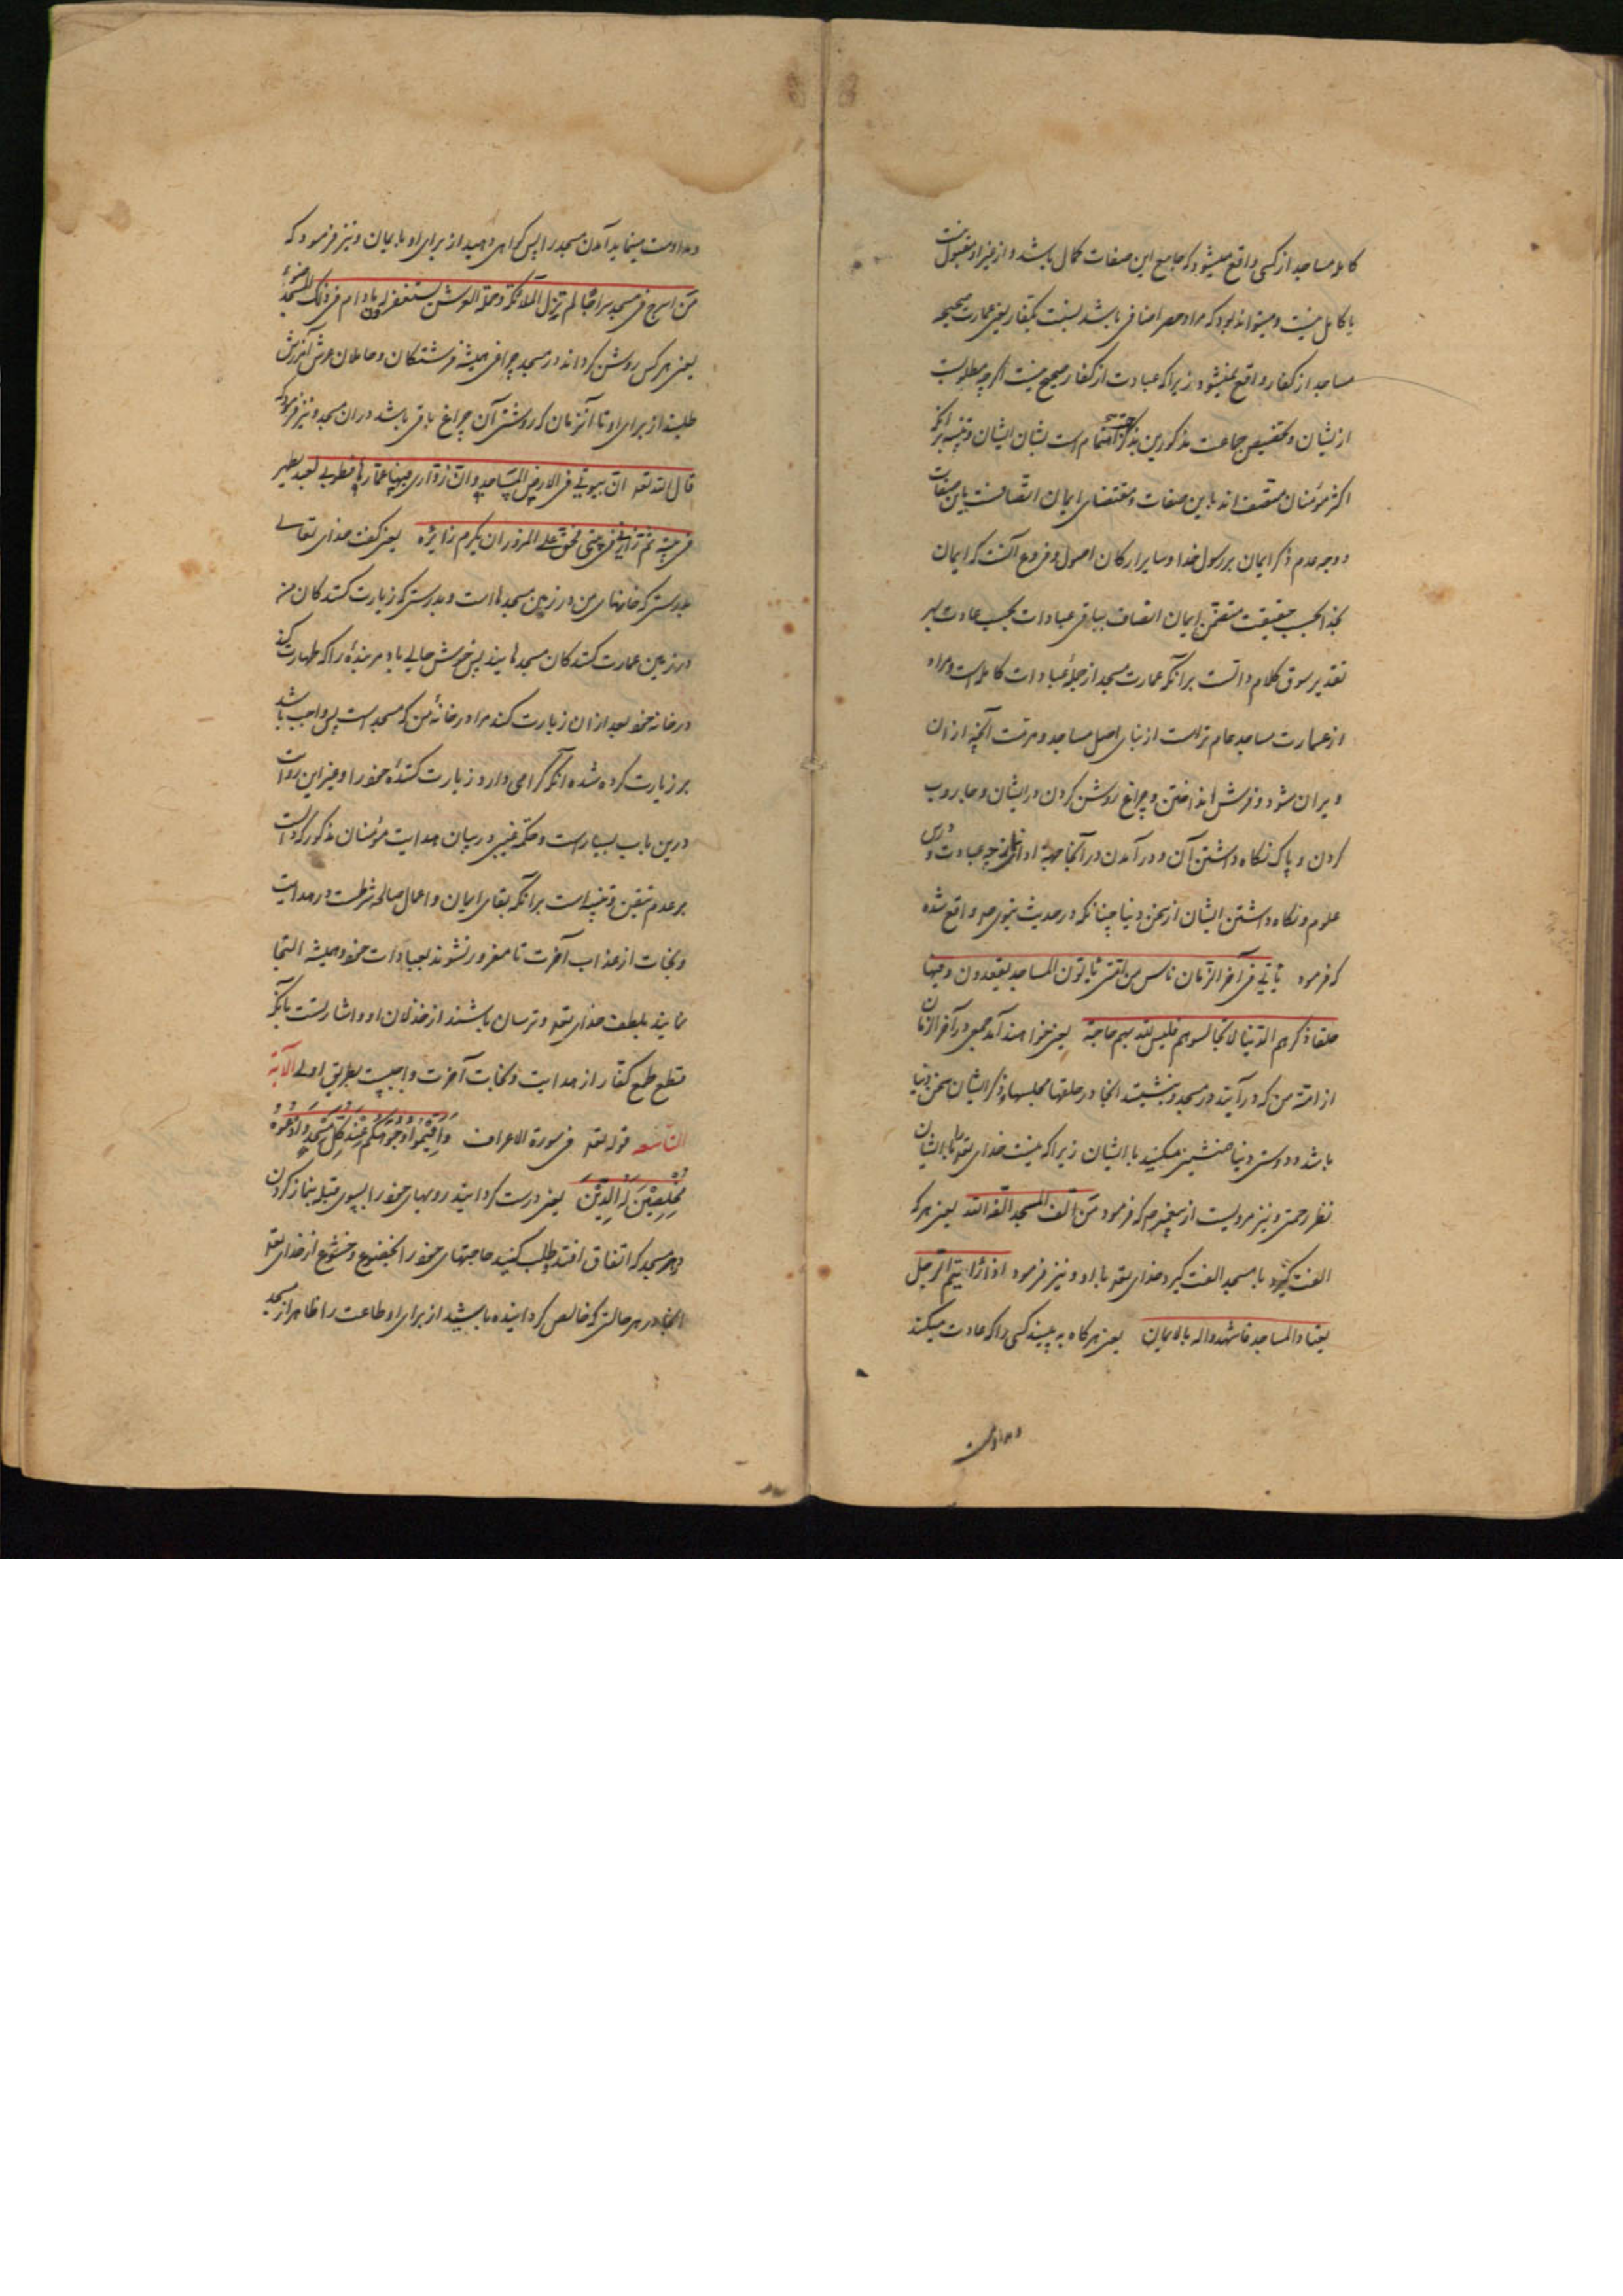 کامله مساجد از کسی واقع میشود که جامع این صفات کمال باشد و از غیر او مقبول نیست
یا کامل نیست و میتواند بود که مراد حصر اضافی باشد بنسبت بکفار یعنی عمارت صحیحه
مساجد از کفار واقع نمیشود زیرا که عبادت از کفار صحیح نیست اگرچه مطلوبست
از ایشان و تخصیص جماعت مذکورین بذکر جهت اهتمام است بشان ایشان و تنبیه برآنکه
اکثر مؤمنان متصف اند باین صفات و مقتضای ایمان اتصافست باین صفات
و وجه عدم ذکر ایمان بر رسول خدا و سایر ارکان اصول و فروع آنست که ایمان
بخدا بحسب حقیقت متضمن ایمان اتصاف بباقی عبادات بحسب عادت بر
تقدیر سوق کلام دالست برآنکه عمارت مسجد از جملهٔ عبادات کامله است و مراد
از عمارت مساجد عام تر است از بنای اصل مساجد و مرمت آنچه از ان
ویران شود و فرش انداختن و چراغ روشن کردن در ایشان و جاروب
کردن و پاک نگاه داشتن آن و در آمدن در آنجا جهة ادای عبادت و درس
علوم و نگاه داشتن ایشان از سخن دنیا چنانکه در حدیث نبوی ص واقع شده
که فرمود یأتی فی آخر الزمان ناس من امتی یأتون المساجد یقعدون فیها
حلقا ذکرهم الدنیا لا تجالسوهم فلیس لله بهم حاجة یعنی خواهند آمد جمعی در آخر الزمان
از امة من که در آیند در مسجد و بنشینند آنجا در حلقها مجلسها ذکر ایشان سخن دنیا
باشد و دوستی دنیا همنشینی مکنید با ایشان زیرا که نیست خدای تعه را با ایشان
نظر رحمتی و نیز مرویست از پیغمبر ص که فرمود من الف المسجد الفه الله یعنی هر که
الفت گیرد با مسجد الفت گیرد خدای تعه با او و نیز فرمود اذا رأیتم الرجل
یعتاد المساجد فاشهدوا له بالایمان یعنی هر گاه به بینید کسی را که عادت میکند
و مداومت
و مداومت مینماید آمدن مسجد را پس گواهی دهید از برای او بایمان و نیز فرمود که
من اسرج فی مسجد سراجا لم تزل الملائکة و حملة العرش یستغفرون له مادام فی ذلک المسجد ضوئه
یعنی هر کس روشن گرداند در مسجد چراغی همیشه فرشتگان و حاملان عرش آمرزش
طلبند از برای او تا آنزمان که روشنی آن چراغ باقی باشد در ان مسجد و نیز فرمود که
قال الله تعه ان بیوتی فی الارض المساجد و ان زواری فیها عمارها فطوبی لعبد یطهر
فی بیته ثم زارنی فی بیتی فحق علی المزور ان یکرم زائره یعنی گفت خدای تعالی
بدرستی که خانهای من در زمین مسجدها است و بدرستی که زیارت کنندکان من
در زمین عمارت کنندکان مسجدهایند پس خوش حالی باد مر بندهٔ را که طهارت کند
در خانه خود بعد از ان زیارت کند مرا در خانهٔ من که مسجد است پس واجب باشد
بر زیارت کرده شده آنکه گرامی دارد زیارت کنندهٔ خود را و غیر این روایات
درین باب بسیار است و در بیان هدایت مؤمنان مذکور که دالست
بر عدم تیقن تنبیه است برآنکه بقای ایمان و اعمال صالحه شرطست در هدایت
و نجات از عذاب آخرت تا مغرور نشوند بعبادات خود و همیشه التجا
نمایند بلطف خدای تعه و ترسان باشند از خذلان او و اشارتست بآنکه
قطع طمع کفار از هدایت و نجات آخرت واجبست بطریق اولی الآیة
التاسعه قوله تعه فی سورة الاعراف وَاَقِیْمُوْا وُجُوْهَکُمْ عِنْدَ کُلِّ مَسْجِدٍ وَادْعُوْهُ
مُخْلِصِیْنَ لَهُ الدِّیْنَ یعنی درست گردانید رویهای خود را بسوی قبله بنماز کردن
در هر مسجد که اتفاق افتد و طلب کنید حاجتهای خود را بخضوع و خشوع از خدای تعه
آنجا در هر حالتی که خالص گردانیده باشید از برای او طاعت را ظاهر از مسجد